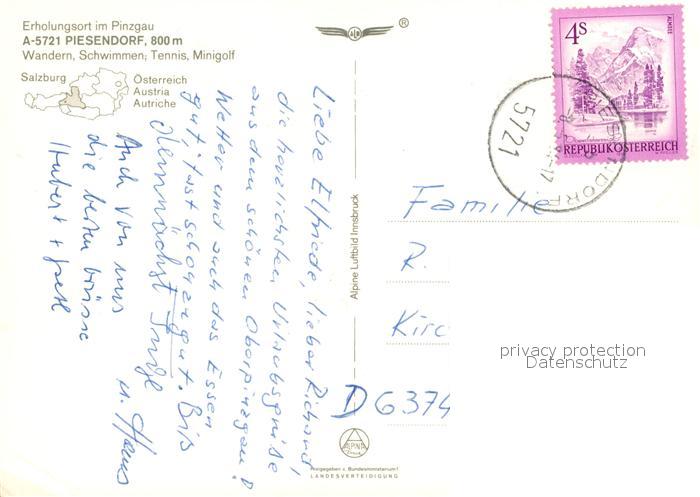 Erholungsort im Pinzgau
A-5721 PIESENDORF, 800 m
Wandern, Schwimmen, Tennis, Minigolf
Salzburg
Österreich
Austria
Autriche
®
Liebe Elfriede, lieber Richard!
die herzlichsten Urlaubsgrüße
aus dem schönen Oberpinzgau!
Wetter und auch das Essen
gut, fast schon zu gut. Bis
demnächst
u. Hans
Auch von uns
die besten Grüsse
Hubert + Gretl
Alpine Luftbild Innsbruck
ALPINE
Freigegeben v. Bundesministerium f.
LANDESVERTEIDIGUNG
4S
ALMSEE
REPUBLIK ÖSTERREICH
PIESENDORF
5721
Familie
R.
Kirc
D 6374
privacy protection
Datenschutz